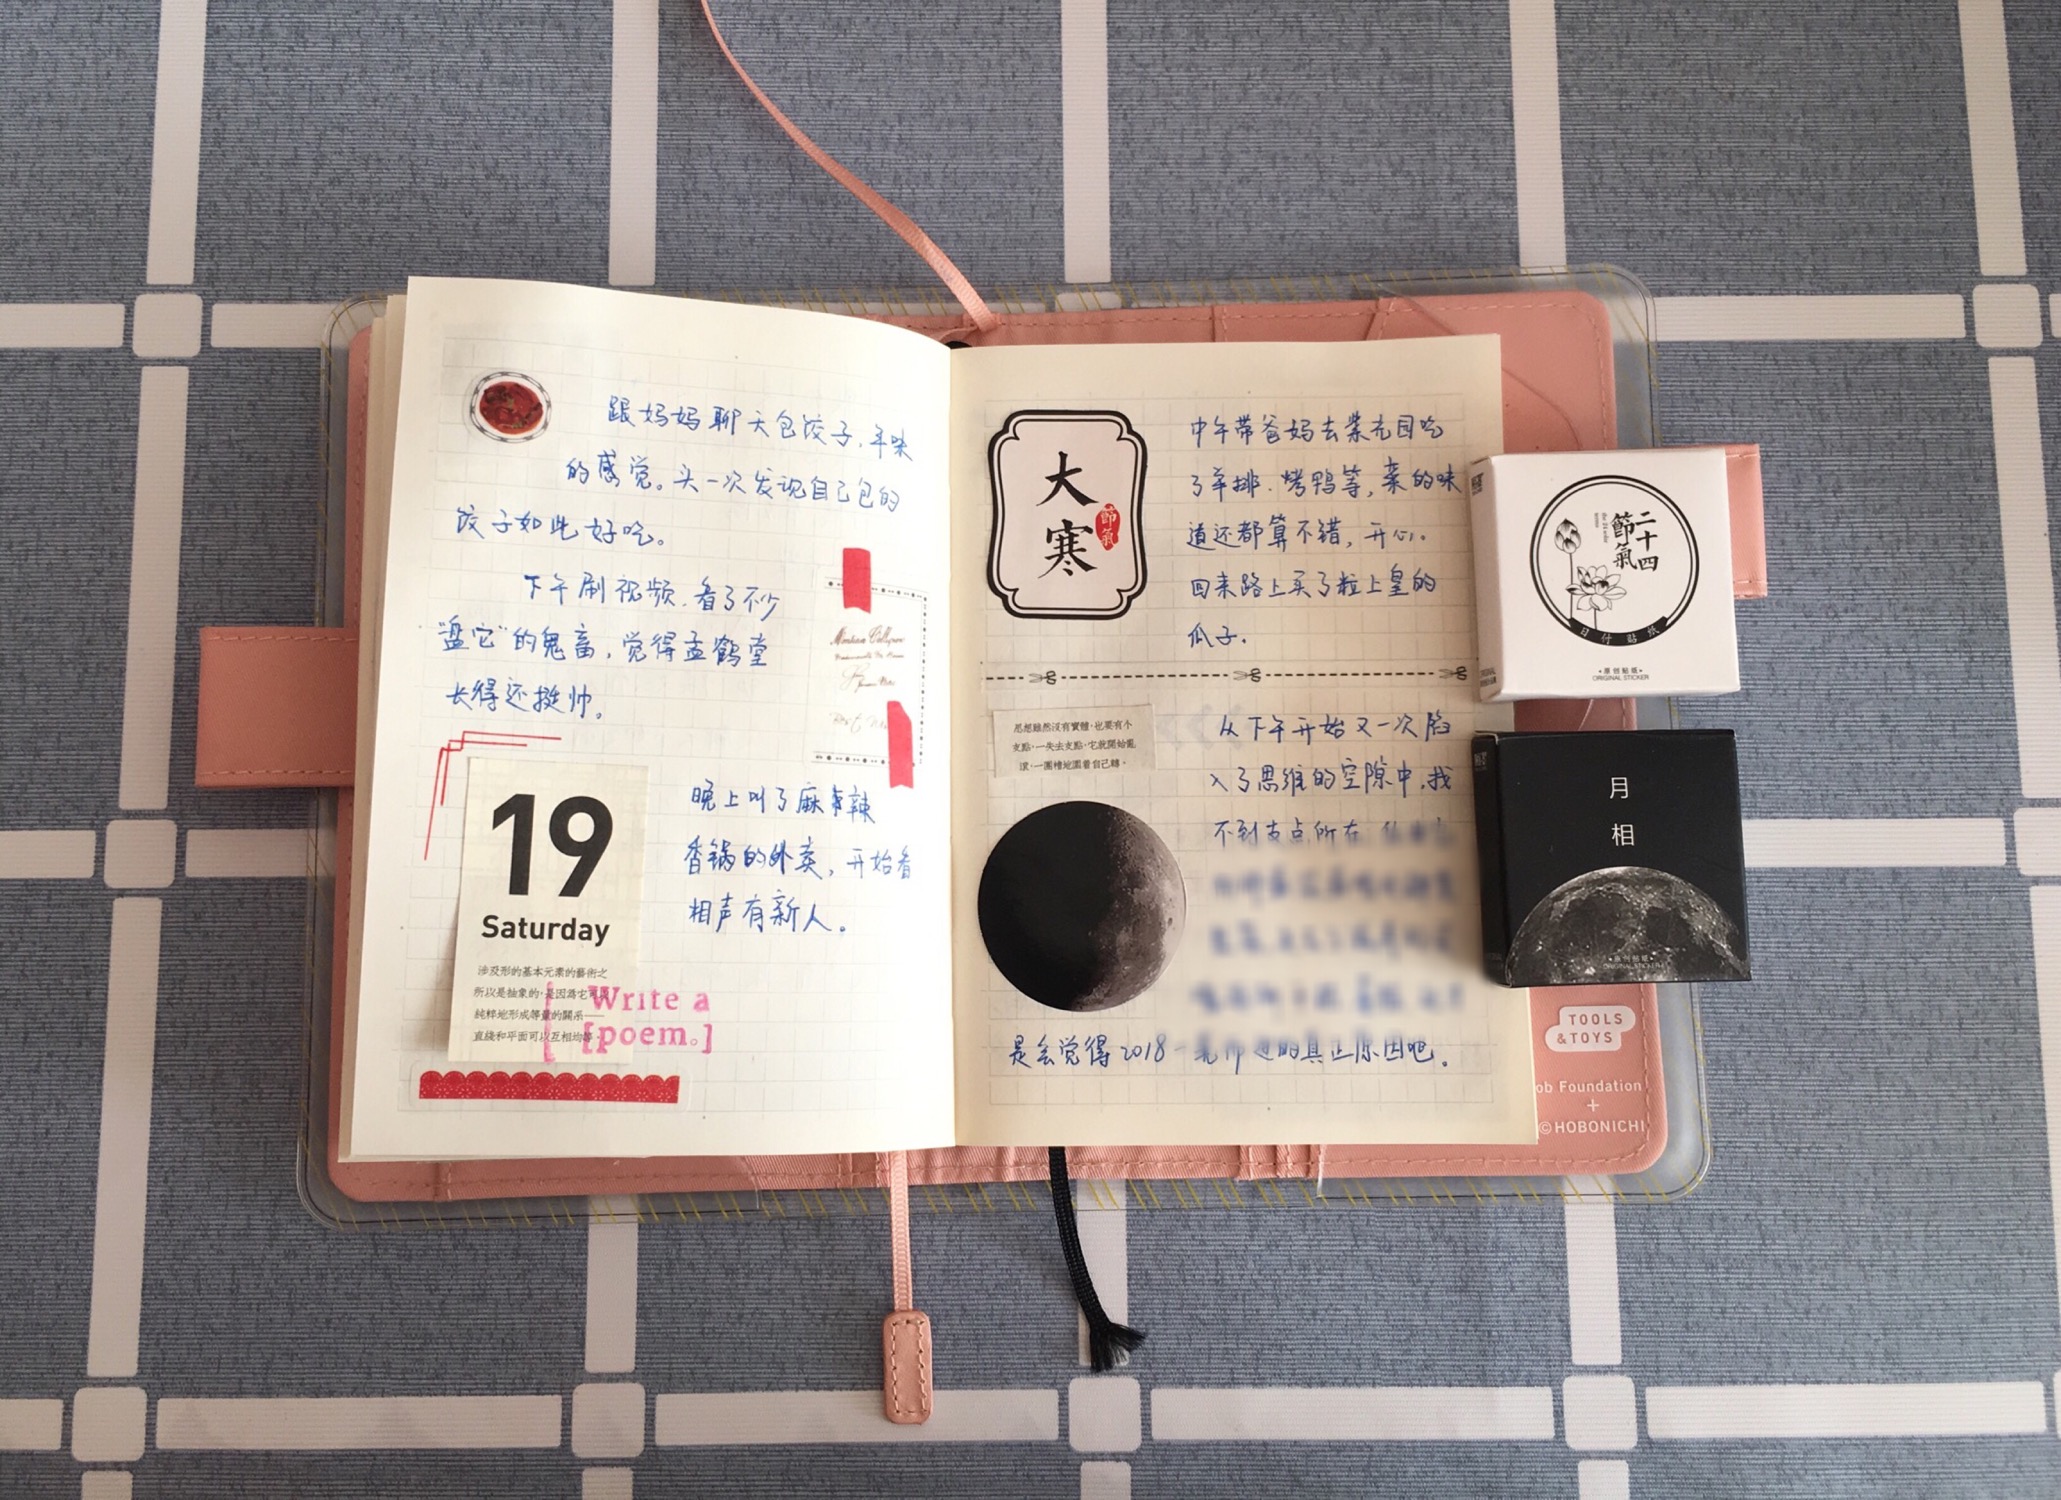 跟妈妈聊天包饺子,年味
的感觉。头一次发现自己包的
饺子如此好吃。
下午刷视频,看了不少
"盘它"的鬼畜,觉得孟鹤堂
长得还挺帅。
晚上叫了麻辣
香锅的外卖,开始看
相声有新人。
19
Saturday
涉及形的基本元素的藝術之
所以是抽象的,是因為它可以
純粹地形成等量的關系——
直綫和平面可以互相均等。
Write a
[poem。]
大寒
節氣
中午带爸妈去紫光园吃
了羊排、烤鸭等,菜的味
道还都算不错,开心。
回来路上买了粒上皇的
瓜子.
思想雖然沒有實體,也要有个
支點,一失去支點,它就開始亂
滾,一團糟地圍着自己轉。
从下午开始又一次陷
入了思维的空隙中,找
不到支点所在
是会觉得2018一
的真正原因吧。
二十四
節氣
the 24 solar
terms
日付貼紙
·原创贴纸·
ORIGINAL STICKER
月
相
·原创贴纸·
ORIGINAL STICKER
TOOLS
&TOYS
ob Foundation
+
©HOBONICHI